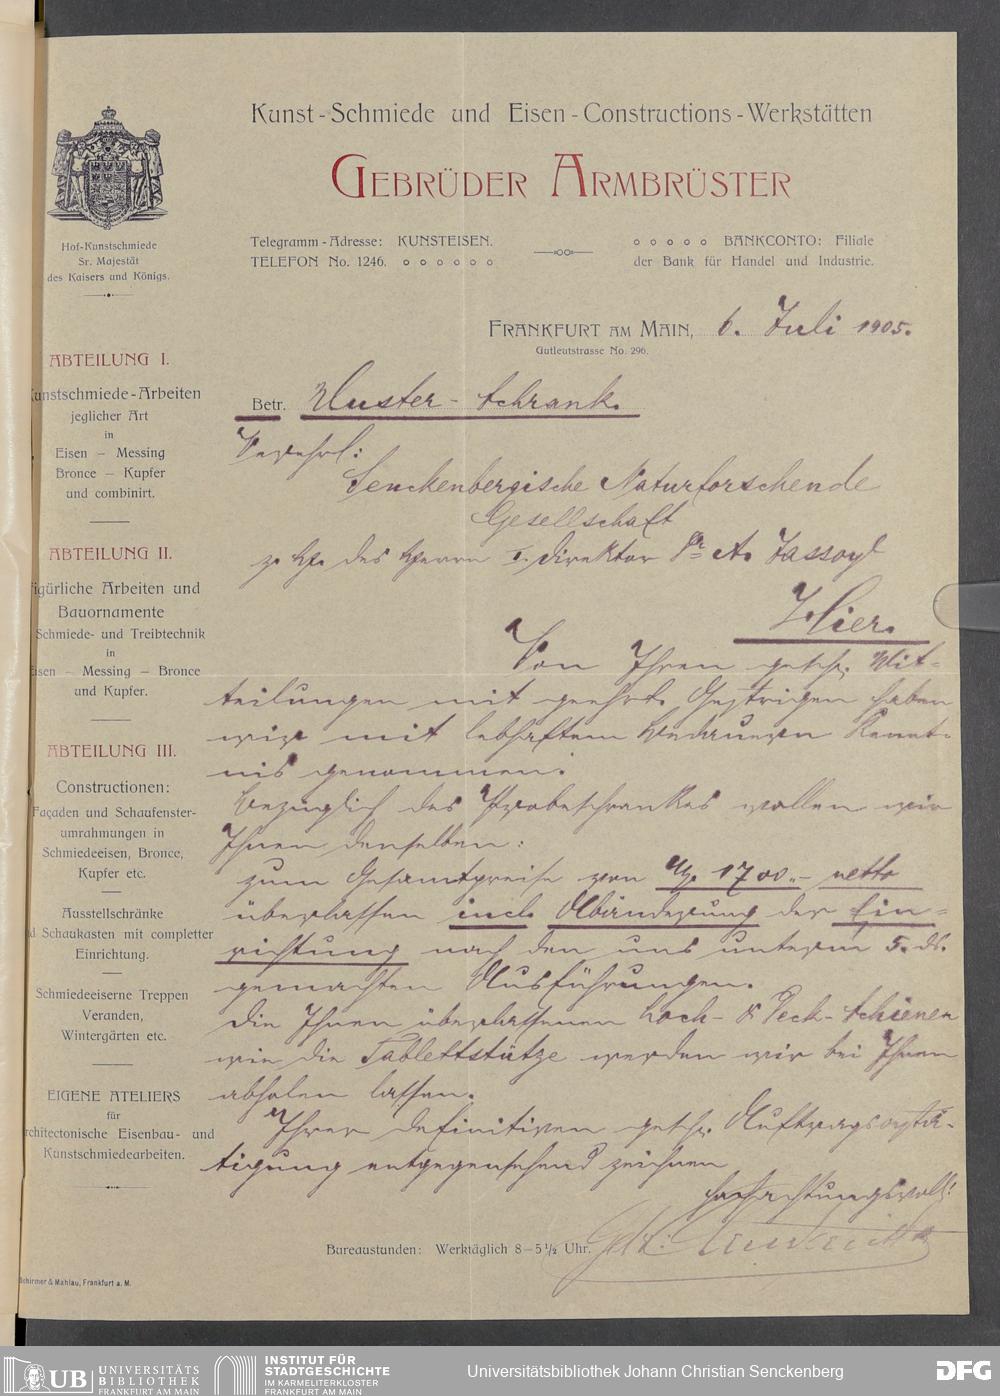 Kunst-Schmiede und Eisen-Constructions-Werkstätten
GEBRÜDER ARMBRÜSTER
Telegramm-Adresse: KUNSTEISEN.
TELEFON No. 1246.
BANKCONTO: Filiale
der Bank für Handel und Industrie.
Hof-Kunstschmiede
Sr. Majestät
des Kaisers und Königs.
FRANKFURT AM MAIN, 6. Juli 1905.
Gutleutstrasse No. 296.
ABTEILUNG I.
unstschmiede-Arbeiten
jeglicher Art
in
Eisen – Messing
Bronce – Kupfer
und combinirt.
ABTEILUNG II.
igürliche Arbeiten und
Bauornamente
Schmiede- und Treibtechnik
in
isen – Messing – Bronce
und Kupfer.
ABTEILUNG III.
Constructionen:
Façaden und Schaufenster-
umrahmungen in
Schmiedeeisen, Bronce,
Kupfer etc.
Ausstellschränke
d Schaukasten mit completter
Einrichtung.
Schmiedeeiserne Treppen
Veranden,
Wintergärten etc.
EIGENE ATELIERS
für
rchitectonische Eisenbau- und
Kunstschmiedearbeiten.
Betr. Muster-Schrank.
Verehrl:
Senckenbergische Naturforschende
Gesellschaft
z. Hd. des Herrn I. Direktor Dr A. Jassoy
Hier.
Von Ihren gesch. Mit-
teilungen mit geehrt. Gestrigen haben
wir mit lebhaftem Bedauern Kennt-
nis genommen.
Bezüglich des Probeschrankes wollen wir
Ihnen denselben:
zum Gesamtpreise von 1700.- netto
überlassen incl. Abänderung der Ein-
richtung nach den uns unterm 5. ds.
gemachten Ausführungen.
Die Ihnen überlassenen Loch- & Deck-Schienen
wie die Tablettstütze werden wir bei Ihnen
abholen lassen.
Ihrer definitiven gesch. Auftragsertä-
tigung entgegensehend zeichnen
hochachtungsvoll!
Bureaustunden: Werktäglich 8–5 1/2 Uhr.
Schirmer & Mahlau, Frankfurt a. M.
UB UNIVERSITÄTS
BIBLIOTHEK
FRANKFURT AM MAIN
INSTITUT FÜR
STADTGESCHICHTE
IM KARMELITERKLOSTER
FRANKFURT AM MAIN
Universitätsbibliothek Johann Christian Senckenberg
DFG